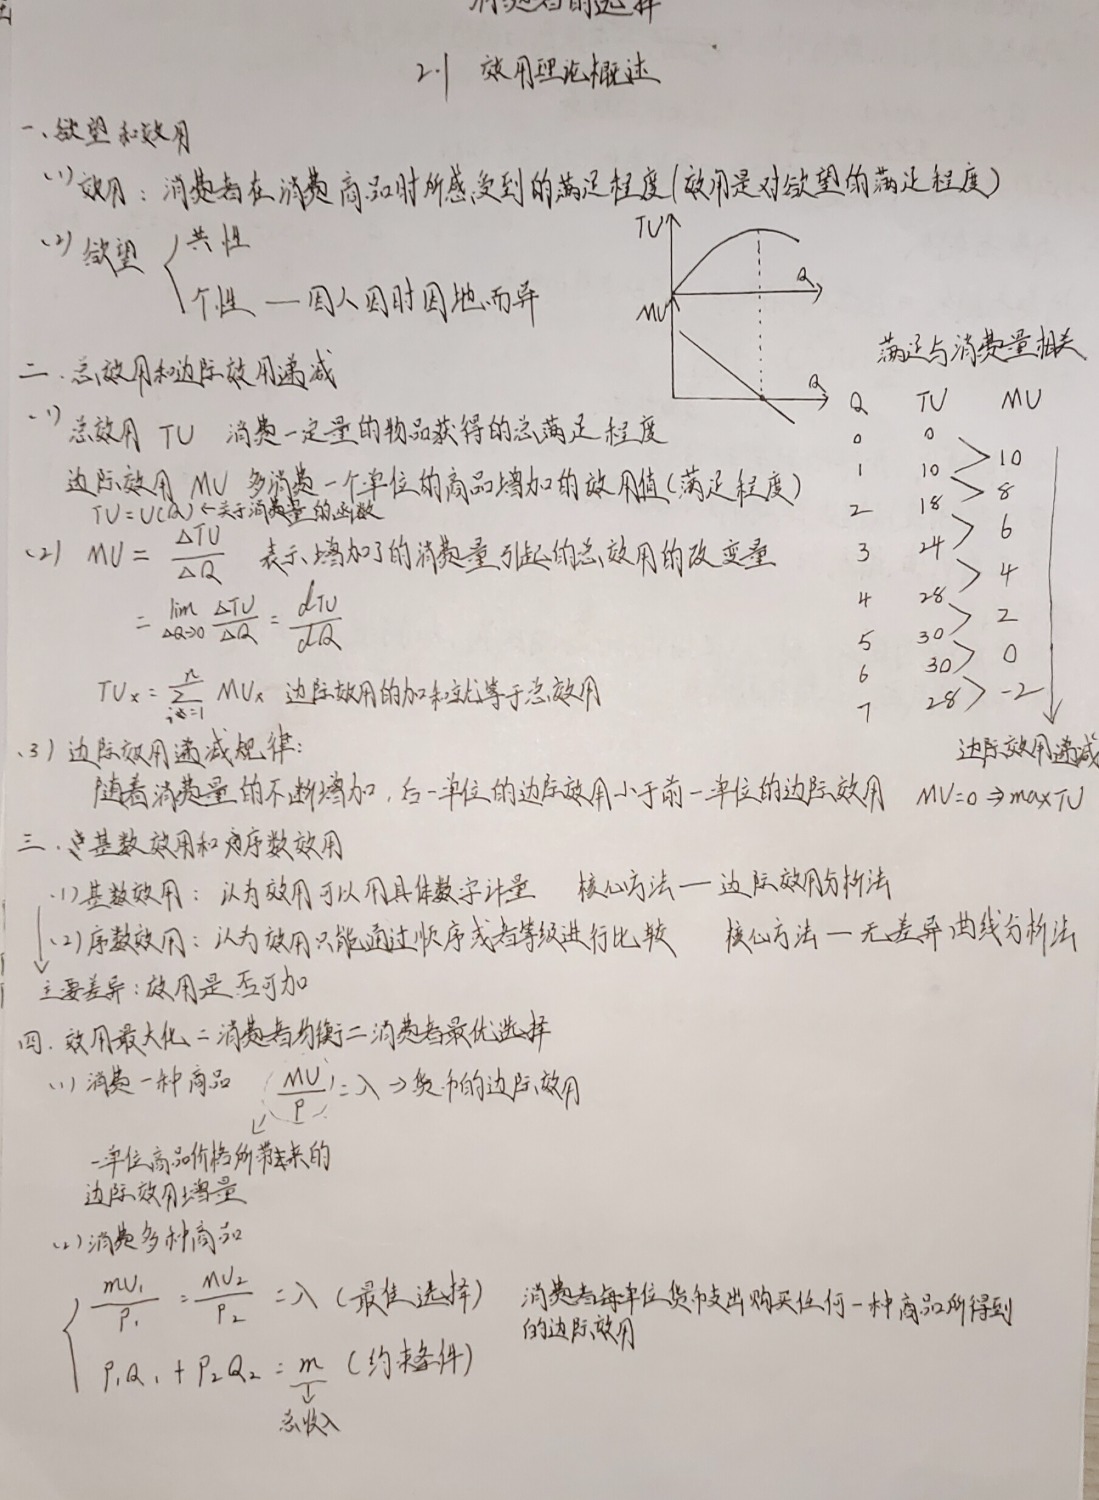 消费者的选择
2.1 效用理论概述
一、欲望和效用
(1) 效用：消费者在消费商品时所感受到的满足程度(效用是对欲望的满足程度)
(2) 欲望 { 共性
个性 — 因人因时因地而异
TU
Q
MU
Q
二.总效用和边际效用递减
(1) 总效用 TU 消费一定量的物品获得的总满足程度
边际效用 MU 多消费一个单位的商品增加的效用值(满足程度)
TU=U(Q) ←关于消费量的函数
(2) MU = ΔTU/ΔQ 表示增加了的消费量引起的总效用的改变量
= lim ΔQ→0 ΔTU/ΔQ = dTU/dQ
TUx = Σ MUx 边际效用的加和就等于总效用
满足与消费量相关
Q TU MU
0 0
1 10 10
2 18 8
3 24 6
4 28 4
5 30 2
6 30 0
7 28 -2
边际效用递减
(3) 边际效用递减规律：
随着消费量的不断增加，后一单位的边际效用小于前一单位的边际效用 MU=0 ⇒ maxTU
三.基数效用和序数效用
(1) 基数效用：认为效用可以用具体数字计量 核心方法 — 边际效用分析法
(2) 序数效用：认为效用只能通过顺序或者等级进行比较 核心方法 — 无差异曲线分析法
主要差异：效用是否可加
四.效用最大化=消费者均衡=消费者最优选择
(1) 消费一种商品 MU/P = λ → 货币的边际效用
一单位商品价格所带来的
边际效用增量
(2) 消费多种商品
MU₁/P₁ = MU₂/P₂ = λ (最佳选择) 消费者每单位货币支出购买任何一种商品所得到
的边际效用
P₁Q₁ + P₂Q₂ = m (约束条件)
总收入